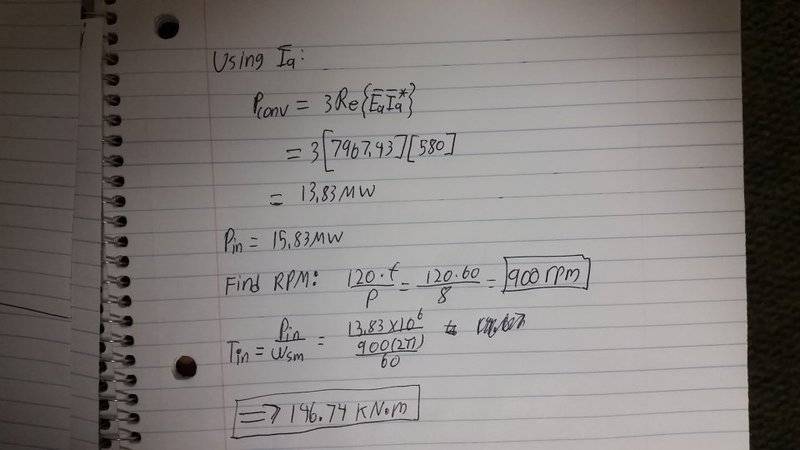 Using Īa:
Pconv = 3Re{ĒaĪa*}
= 3[7967.43][580]
= 13.83MW
Pin = 15.83MW
Find RPM: 120·f/P = 120·60/8 = 900 rpm
Tin = Pin/Wsm = 13.83×10^6/(900(2π)/60)
=> 146.74 KN·m